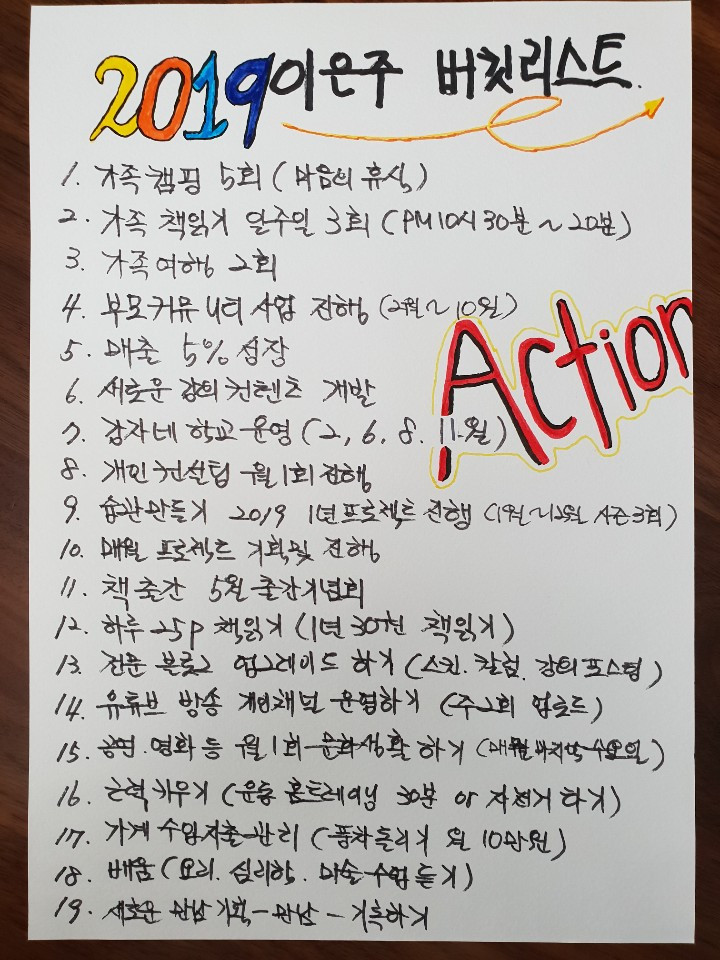 2019 이은주 버킷리스트.
1. 가족캠핑 5회 (마음의 휴식)
2. 가족 책읽기 일주일 3회 (PM10시30분~20분)
3. 가족여행 2회
4. 부모커뮤니티사업 진행 (2월~10월)
5. 매출 5% 성장
6. 새로운 강의컨텐츠 개발
7. 감자네 학교 운영 (2, 6, 8, 11월)
Action
8. 개인컨설팅 월1회 진행
9. 습관만들기 2019 1년프로젝트 진행 (1월~12월 시즌3회)
10. 매월 프로젝트 기획및 진행
11. 책출간 5월 출간기념회
12. 하루 25p 책읽기 (1년 30권 책읽기)
13. 전문 블로그 업그레이드 하기 (스킨. 칼럼. 강의포스팅)
14. 유튜브 방송 개인채널 운영하기 (주2회 업로드)
15. 공연. 영화 등 월1회 문화생활 하기 (매월 마지막 수요일)
16. 근력키우기 (운동 홈트레이닝 30분 or 자전거하기)
17. 가계 수입지출 관리 (풍차돌리기 월 10만원)
18. 배움 (요리. 심리학. 미술 수업 듣기)
19. 새로운 만남 기획 - 만남 - 기록하기